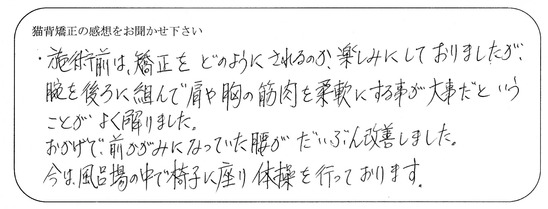 猫背矯正の感想をお聞かせ下さい
・施術前は、矯正をどのようにされるのか、楽しみにしておりましたが、
腕を後ろに組んで肩や胸の筋肉を柔軟にする事が大事だという
ことがよく解りました。
おかげで、前かがみになっていた腰がだいぶん改善しました。
今は、風呂場の中で椅子に座り体操を行っております。